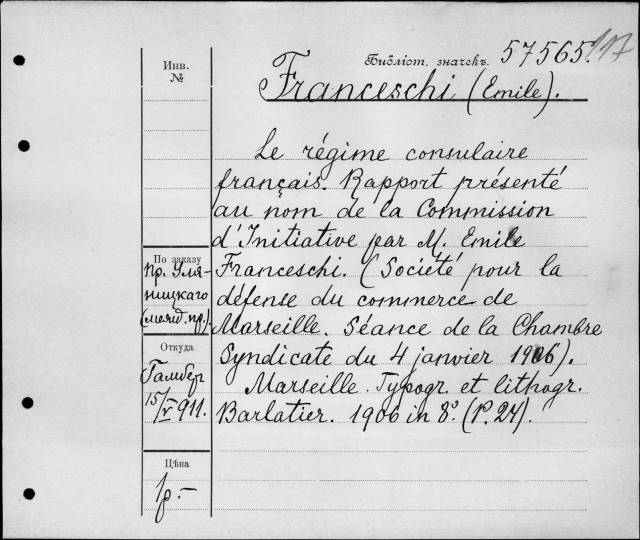 Инв.
№
Библіот. значекъ 57565. 117
Franceschi (Emile).
Le régime consulaire
français. Rapport présenté
au nom de la Commission
d'Initiative par M. Emile
Franceschi. (Société pour la
défense du commerce de
Marseille. Séance de la Chambre
Syndicate du 4 janvier 1906).
Marseille. Typogr. et lithogr.
Barlatier. 1906 in 8°. (P. 24).
По заказу
пр. Уля-
ницкаго
(межд. пр.).
Откуда
Гамбер
15/V 911.
Цѣна
1р.–